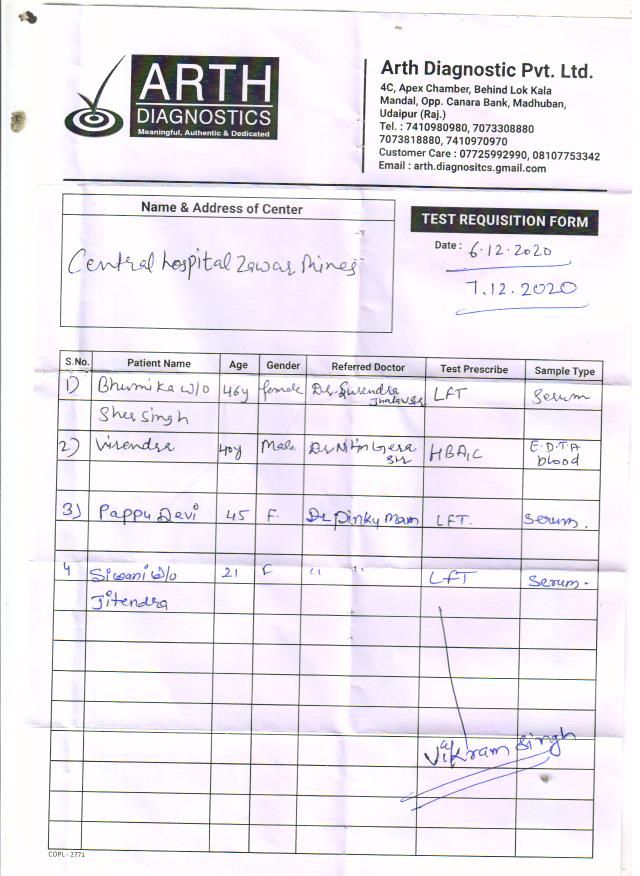 ARTH
DIAGNOSTICS
Meaningful, Authentic & Dedicated
Arth Diagnostic Pvt. Ltd.
4C, Apex Chamber, Behind Lok Kala
Mandal, Opp. Canara Bank, Madhuban,
Udaipur (Raj.)
Tel. : 7410980980, 7073308880
7073818880, 7410970970
Customer Care : 07725992990, 08107753342
Email : arth.diagnositcs.gmail.com
Name & Address of Center
Central hospital Zawar Mines
TEST REQUISITION FORM
Date : 6.12.2020
7.12.2020
S.No. Patient Name Age Gender Referred Doctor Test Prescribe Sample Type
1) Bhumika W/O 46y female Dr. Surendra LFT Serum
Sher Singh
2) Virendra 40y Male Dr Nitin HBA1C E.D.T.A
Sir blood
3) Pappu Devi 45 F. Dr Pinky Mam LFT. Serum.
4 Siwani W/o 21 F " " LFT Serum.
Jitendra
Vikram Singh
COPL-2771